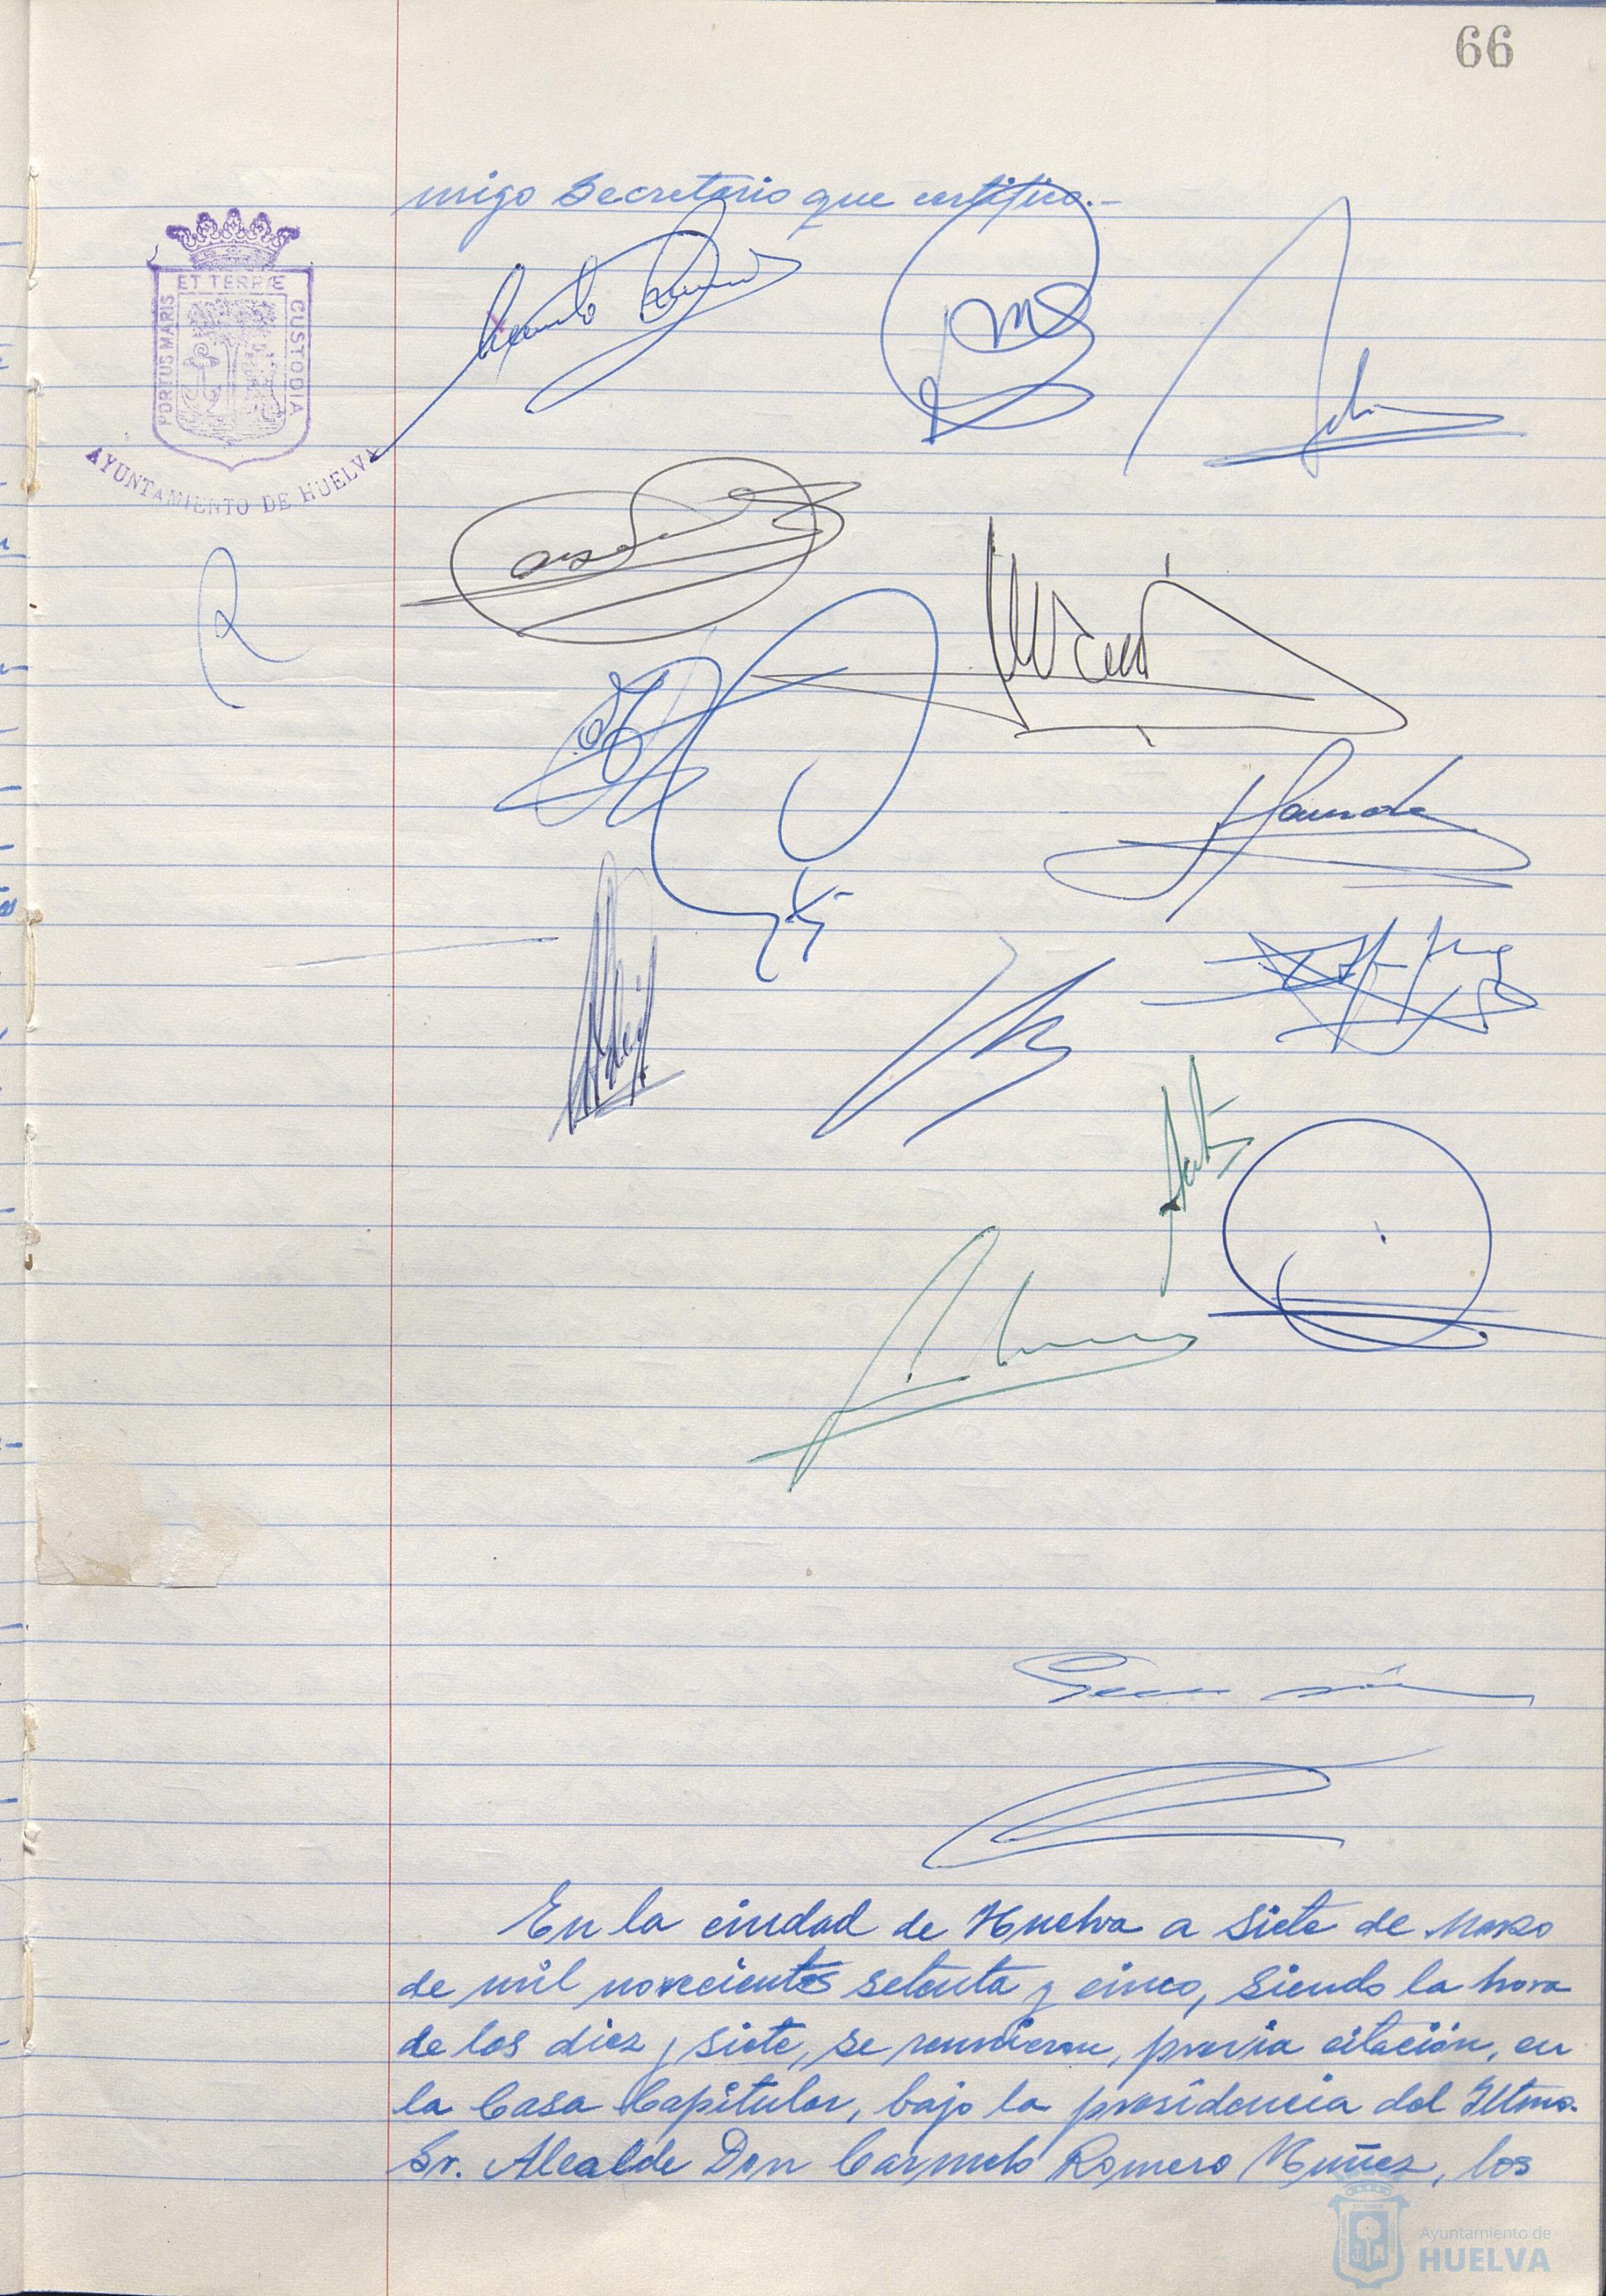 66
migo Secretario que certifico.-
PORTUS MARIS ET TERRÆ CUSTODIA
AYUNTAMIENTO DE HUELVA
En la ciudad de Huelva a siete de Marzo
de mil novecientos setenta y cinco, siendo la hora
de las diez y siete, se reunieron, previa citación, en
la Casa Capitular, bajo la presidencia del Iltmo.
Sr. Alcalde Don Carmelo Romero Nuñez, los
Ayuntamiento de
HUELVA